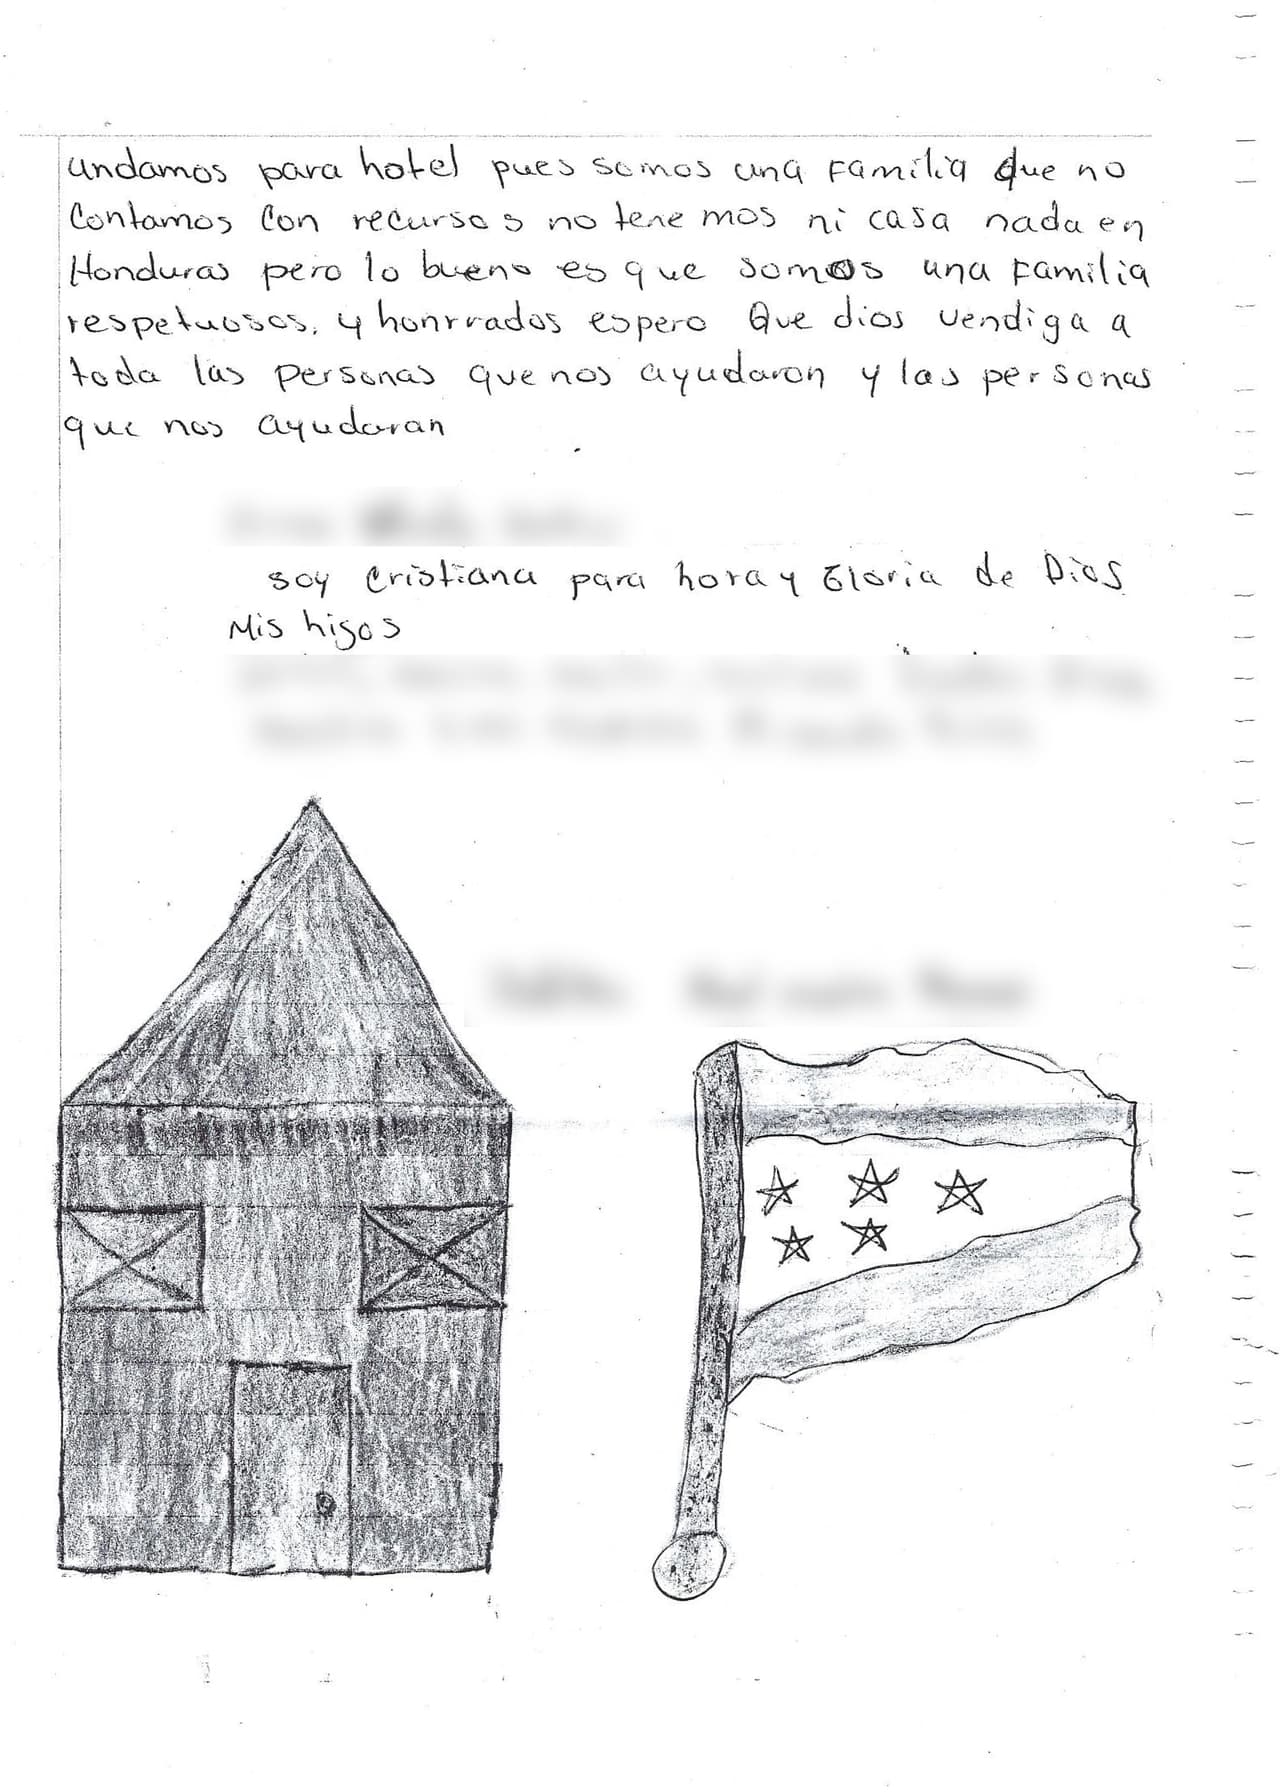 andamos para hotel pues somos una familia que no
Contamos Con recursos no tenemos ni casa nada en
Honduras pero lo bueno es que somos una familia
respetuosos, y honrrados espero Que dios vendiga a
toda las personas que nos ayudaron y las personas
que nos ayudaran
soy Cristiana para hora y Gloria de Dios
Mis higos